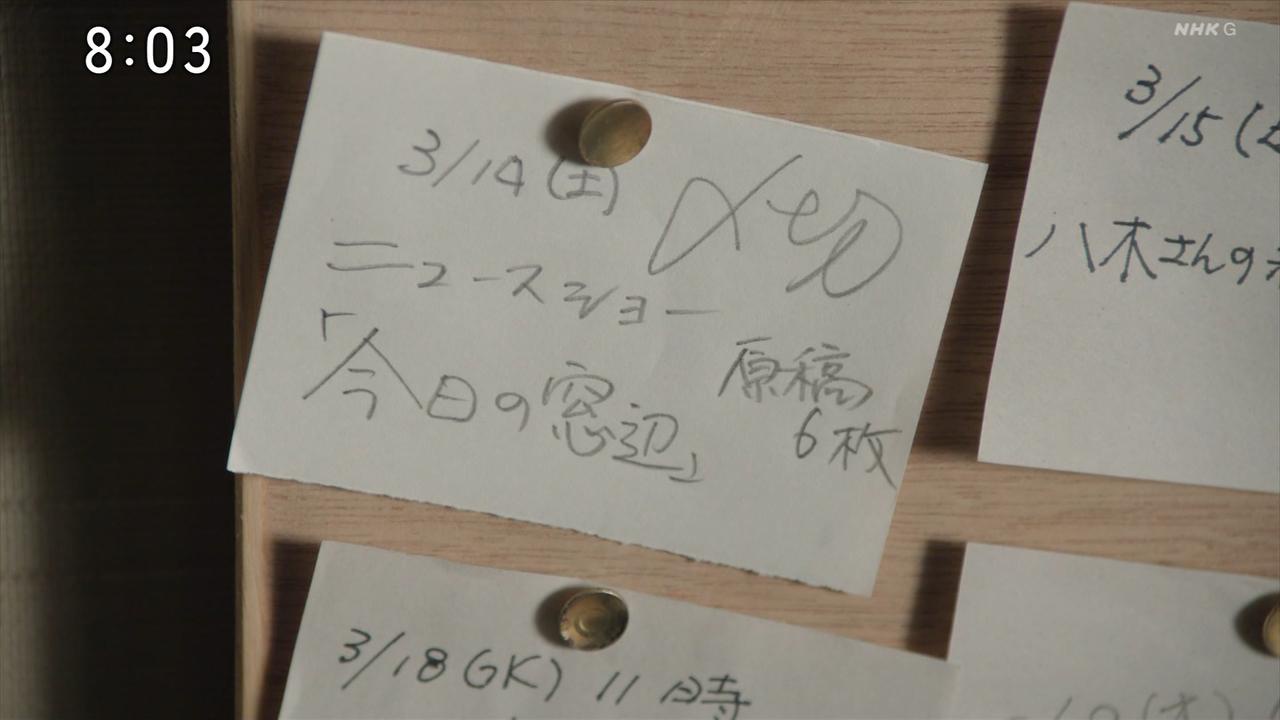 8:03
NHK G
3/14(土) 〆切
ニュースショー
「今日の窓辺」
原稿
6枚
3/15(
八木さんの
3/18(水) 11時
(木)